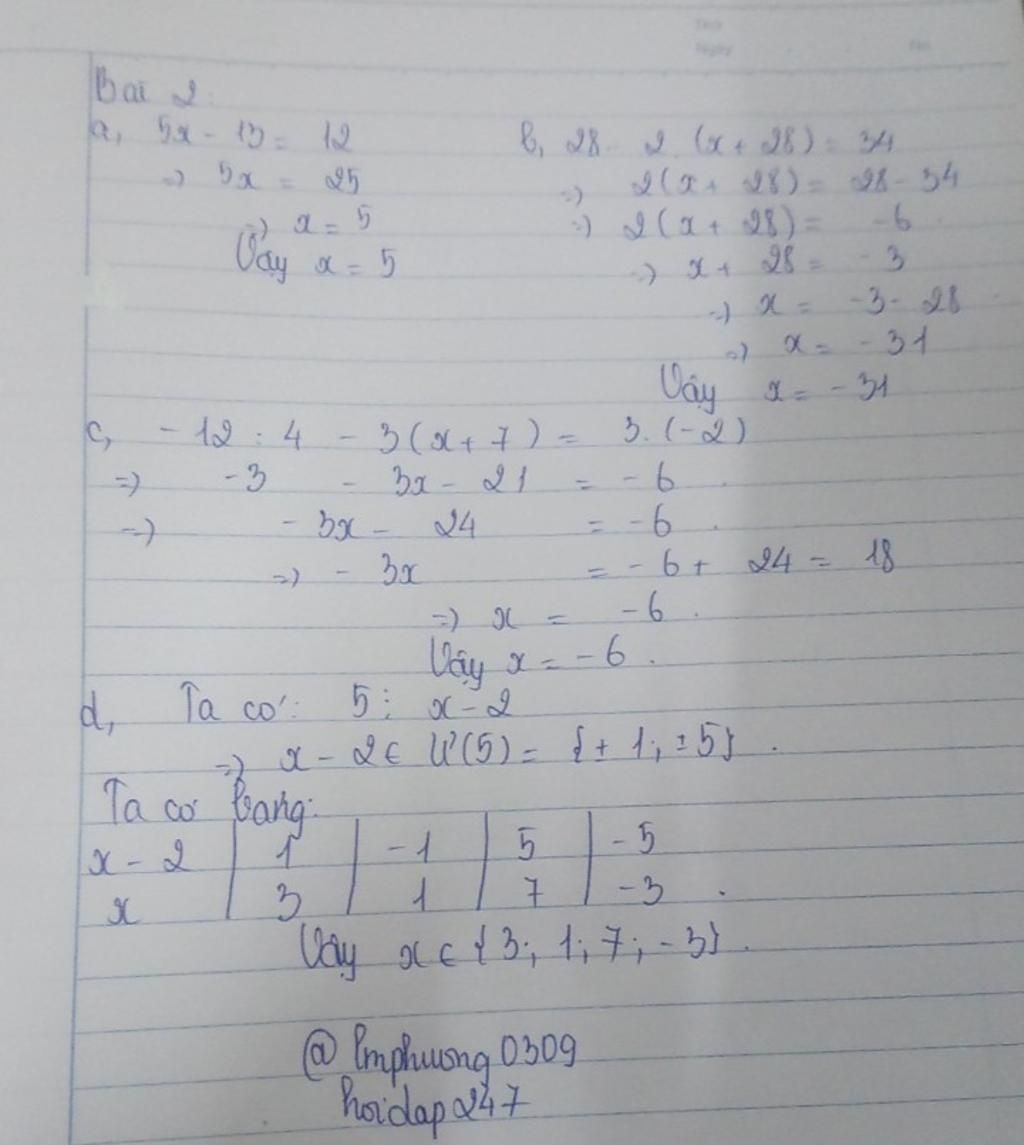 Bài 2:
a, 5x - 13 = 12
=> 5x = 25
=> x = 5
Vậy x = 5
b, 28 - 2. (x + 28) = 34
=> 2(x + 28) = 28 - 34
=> 2(x + 28) = -6
=> x + 28 = -3
=> x = -3 - 28
=> x = -31
Vậy x = -31
c, -12 : 4 - 3(x + 7) = 3. (-2)
=> -3 - 3x - 21 = -6
=> -3x - 24 = -6
=> -3x = -6 + 24 = 18
=> x = -6.
Vậy x = -6.
d, Ta có: 5 ⋮ x - 2
=> x - 2 ∈ Ư(5) = {±1; ±5}.
Ta có bảng:
x - 2 | 1 | -1 | 5 | -5
x | 3 | 1 | 7 | -3.
Vậy x ∈ {3; 1; 7; -3}.
@ lmphuong0309
hoidap247